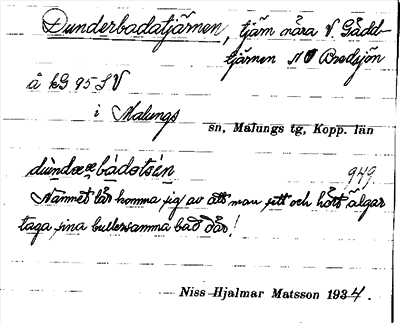 Dunderbadatjärnen, tjärn nära V. Gådd-
tjärnen N O Bredsjön
å kG 95 S V
i Malungs
sn, Malungs tg, Kopp. län
dùndææbádətsén 949
Namnet lär komma sig av att man sett och hört älgar
taga sina bullersamma bad där!
Niss Hjalmar Matsson 1934.